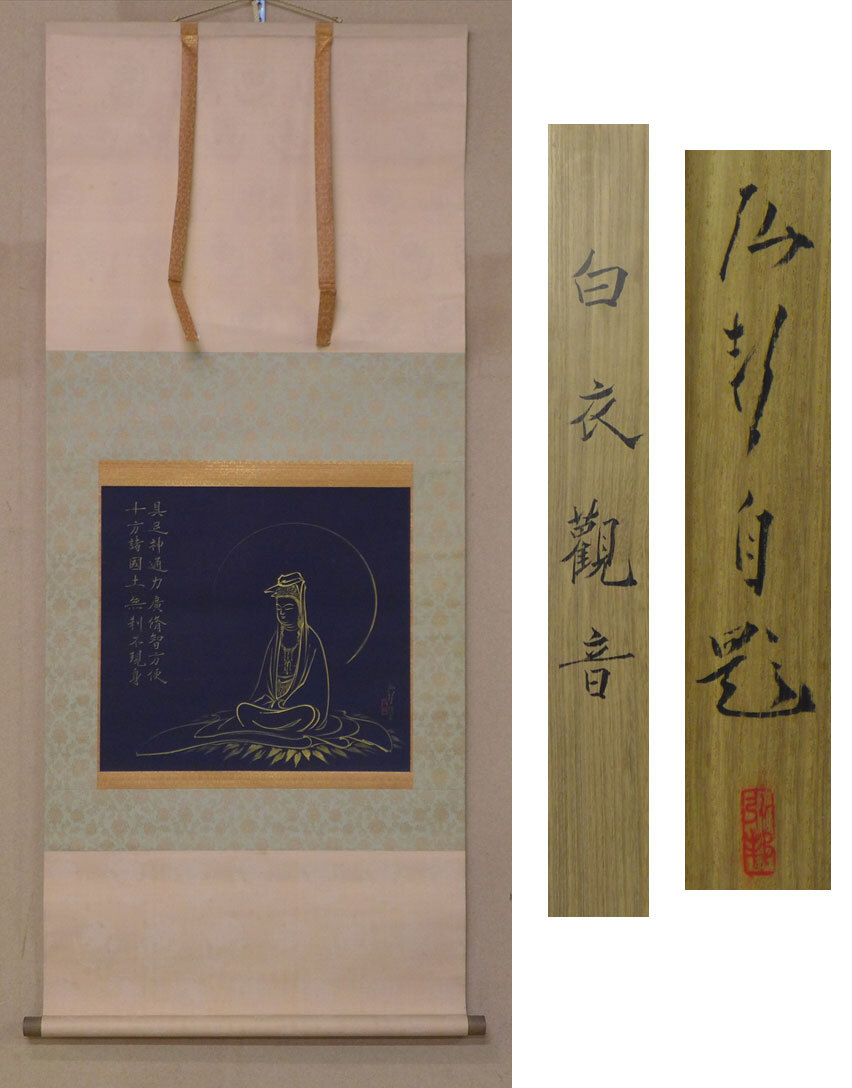 具足神通力廣脩智方便
十方諸國土無刹不現身
白衣觀音
自題